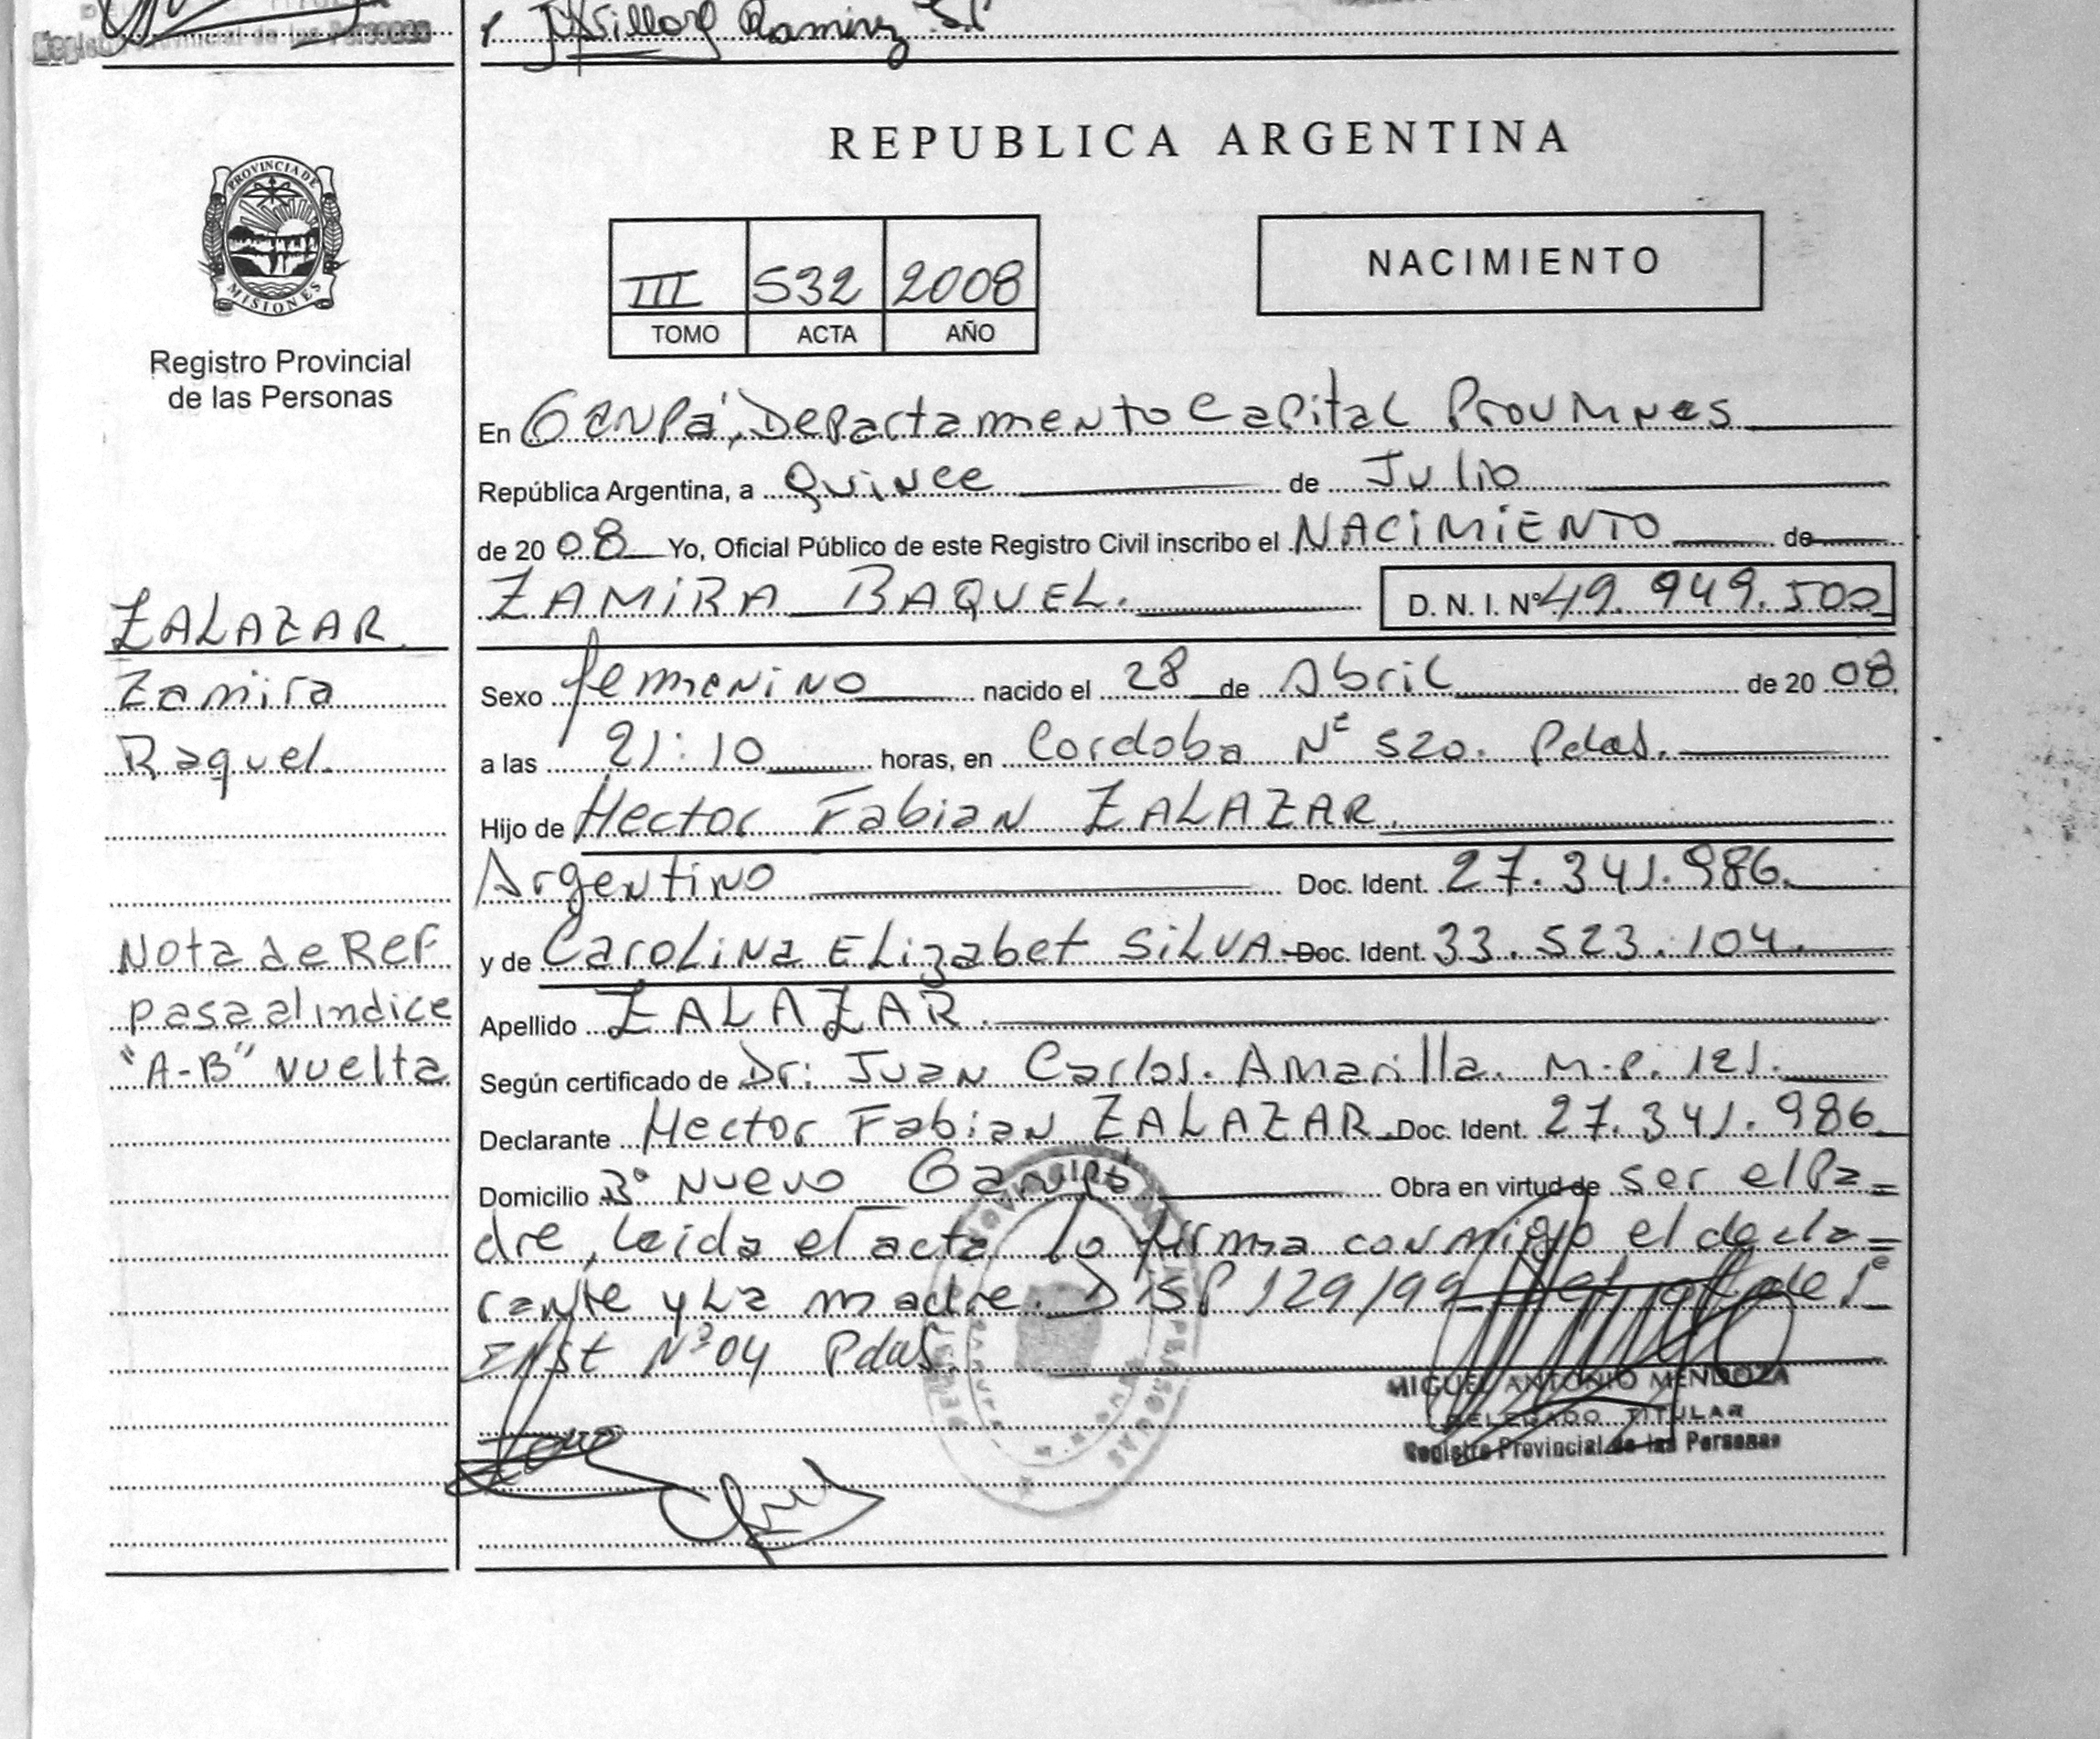 Ramirez S.P
Registro Provincial de las Personas
REPUBLICA ARGENTINA
PROVINCIA DE
MISIONES
Registro Provincial
de las Personas
III 532 2008
TOMO ACTA AÑO
NACIMIENTO
En Garupá, Departamento Capital Prov Mnes
República Argentina, a Quince de Julio
de 20 08 Yo, Oficial Público de este Registro Civil inscribo el NACIMIENTO de
ZAMIRA RAQUEL. D. N. I. Nº 49.949.500
ZALAZAR
Zamira
Raquel.
Sexo femenino nacido el 28 de Abril de 20 08
a las 21:10 horas, en Cordoba Nº 520. Pdas.
Hijo de Hector Fabian ZALAZAR.
Argentino Doc. Ident. 27.341.986.
y de Carolina Elizabet SILVA Doc. Ident. 33.523.104.
Apellido ZALAZAR.
Según certificado de Dr: Juan Carlos. Amarilla. M.P. 121.
Declarante Hector Fabian ZALAZAR Doc. Ident. 27.341.986
Domicilio Bº Nuevo Garupá Obra en virtud de ser el Pa=
dre, leida el acta lo firma conmigo el decla=
rante y La madre. Disp 129/99 de 1º
Inst Nº 04 Pdas.
Nota de Ref
pasa al indice
"A-B" vuelta
MIGUEL ANTONIO MENDOZA
DELEGADO TITULAR
Registro Provincial de las Personas